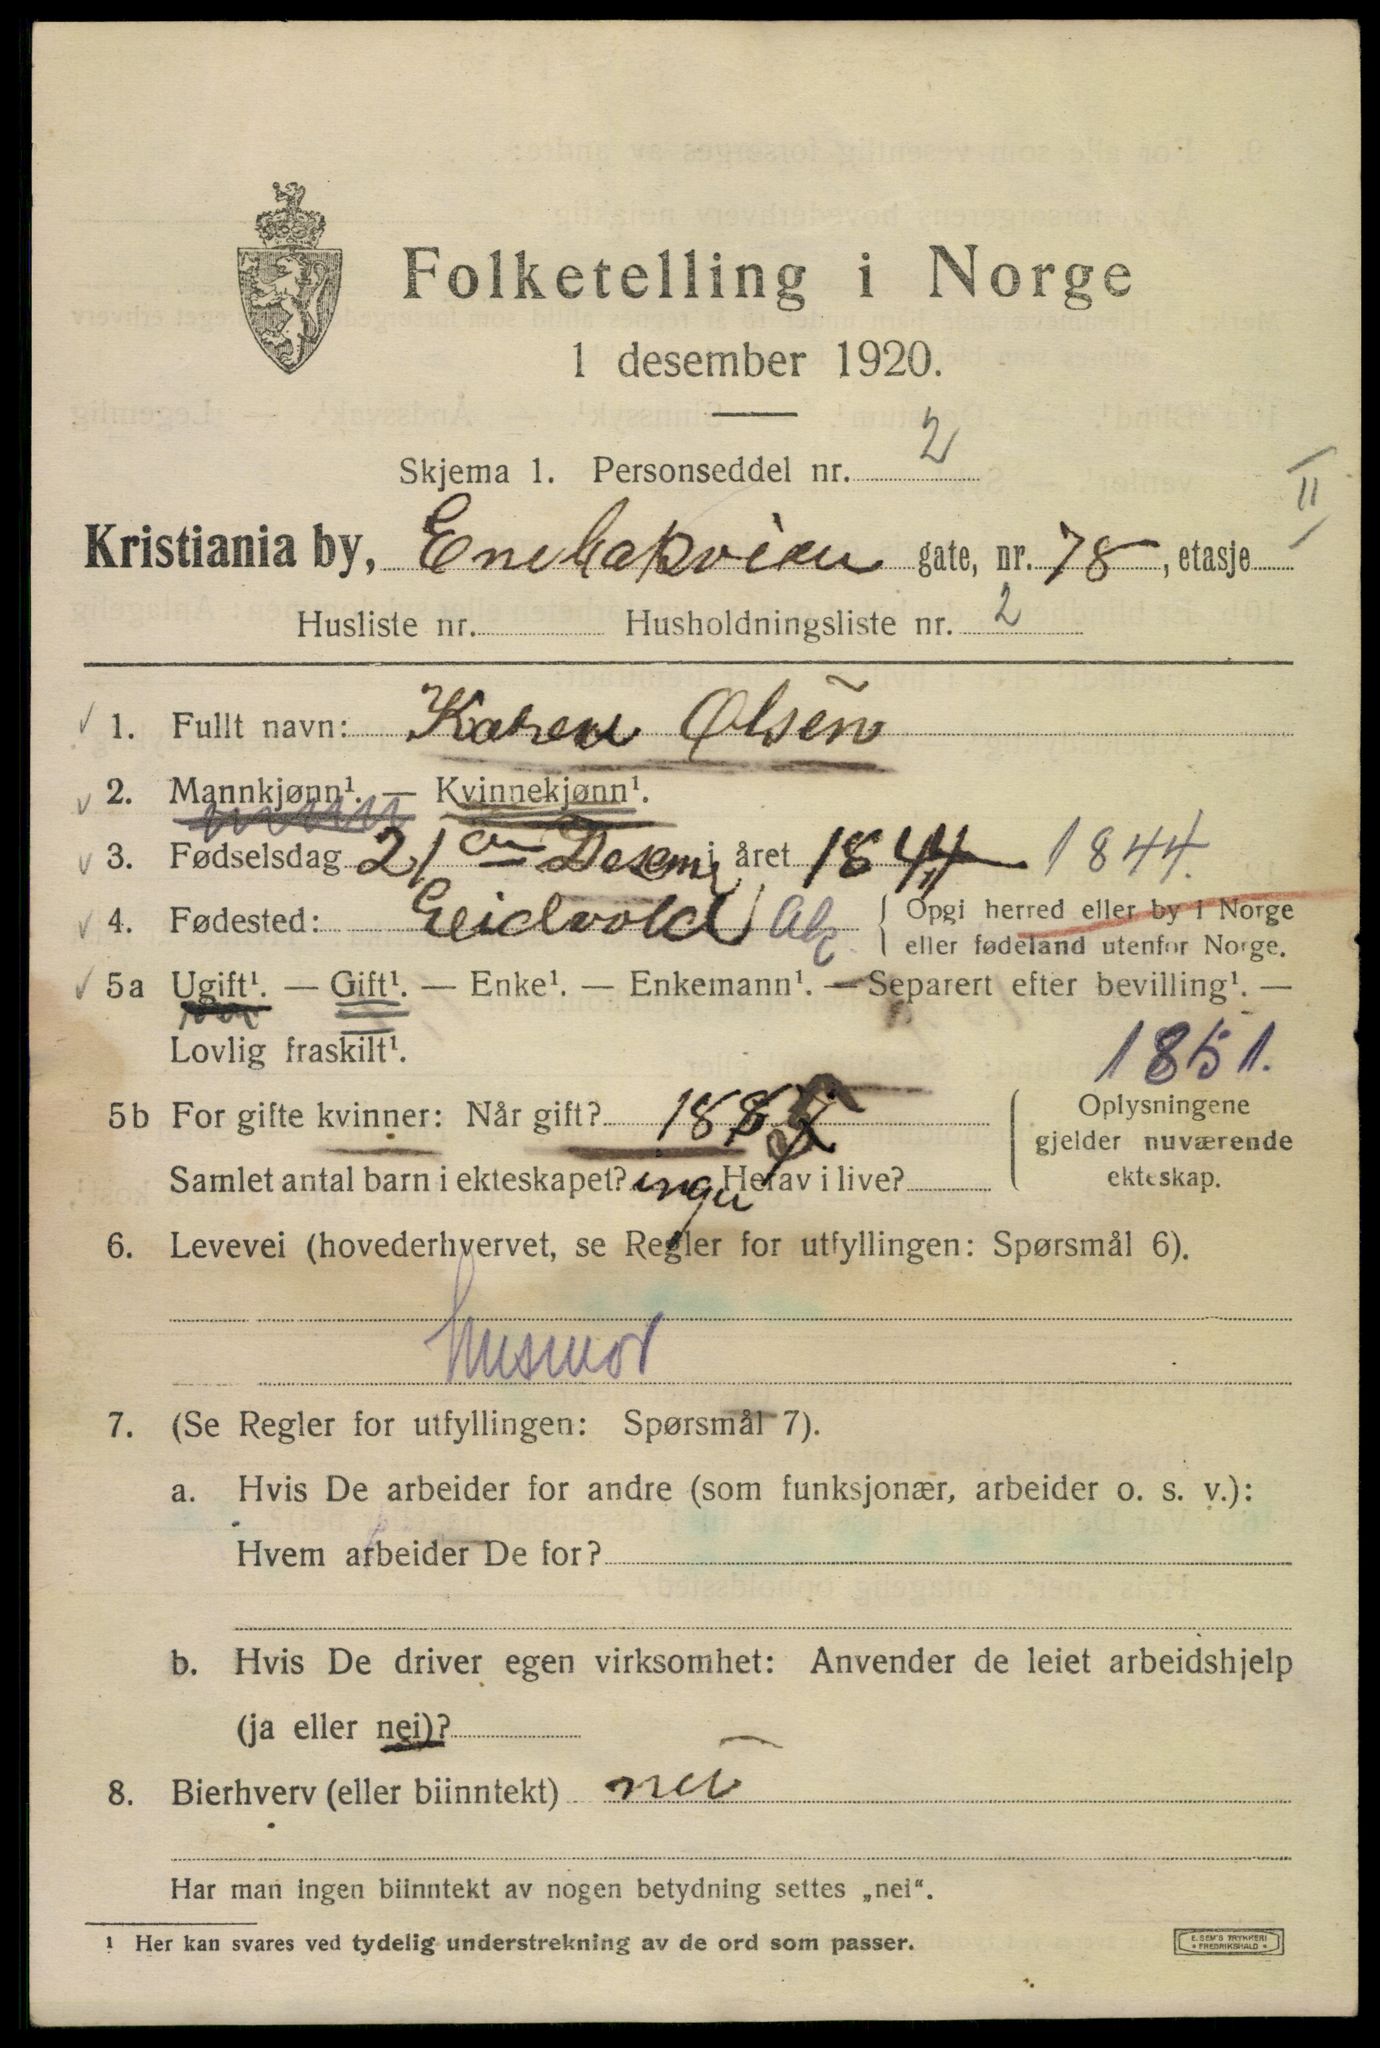 Folketelling i Norge
1 desember 1920.
Skjema 1. Personseddel nr. 2
Kristiania by, Enebakveien gate, nr. 78, etasje II
Husliste nr. Husholdningsliste nr. 2
1. Fullt navn: Karen Olsen
2. Mannkjønn¹. — Kvinnekjønn¹.
3. Fødselsdag 21 Desem i året 1844 1844.
4. Fødested: Eidvold Ak. { Opgi herred eller by i Norge
eller fødeland utenfor Norge.
5a Ugift¹. — Gift¹. — Enke¹. — Enkemann¹. — Separert efter bevilling¹. —
Lovlig fraskilt¹.
1851.
5b For gifte kvinner: Når gift? 188
Samlet antal barn i ekteskapet? ingen Herav i live?
Oplysningene
gjelder nuværende
ekteskap.
6. Levevei (hovederhvervet, se Regler for utfyllingen: Spørsmål 6).
husmor
7. (Se Regler for utfyllingen: Spørsmål 7).
a. Hvis De arbeider for andre (som funksjonær, arbeider o. s. v.):
Hvem arbeider De for?
b. Hvis De driver egen virksomhet: Anvender de leiet arbeidshjelp
(ja eller nei)?
8. Bierhverv (eller biinntekt) nei
Har man ingen biinntekt av nogen betydning settes „nei“.
¹ Her kan svares ved tydelig understrekning av de ord som passer.
E. SEM'S TRYKKERI
• FREDRIKSHALD •